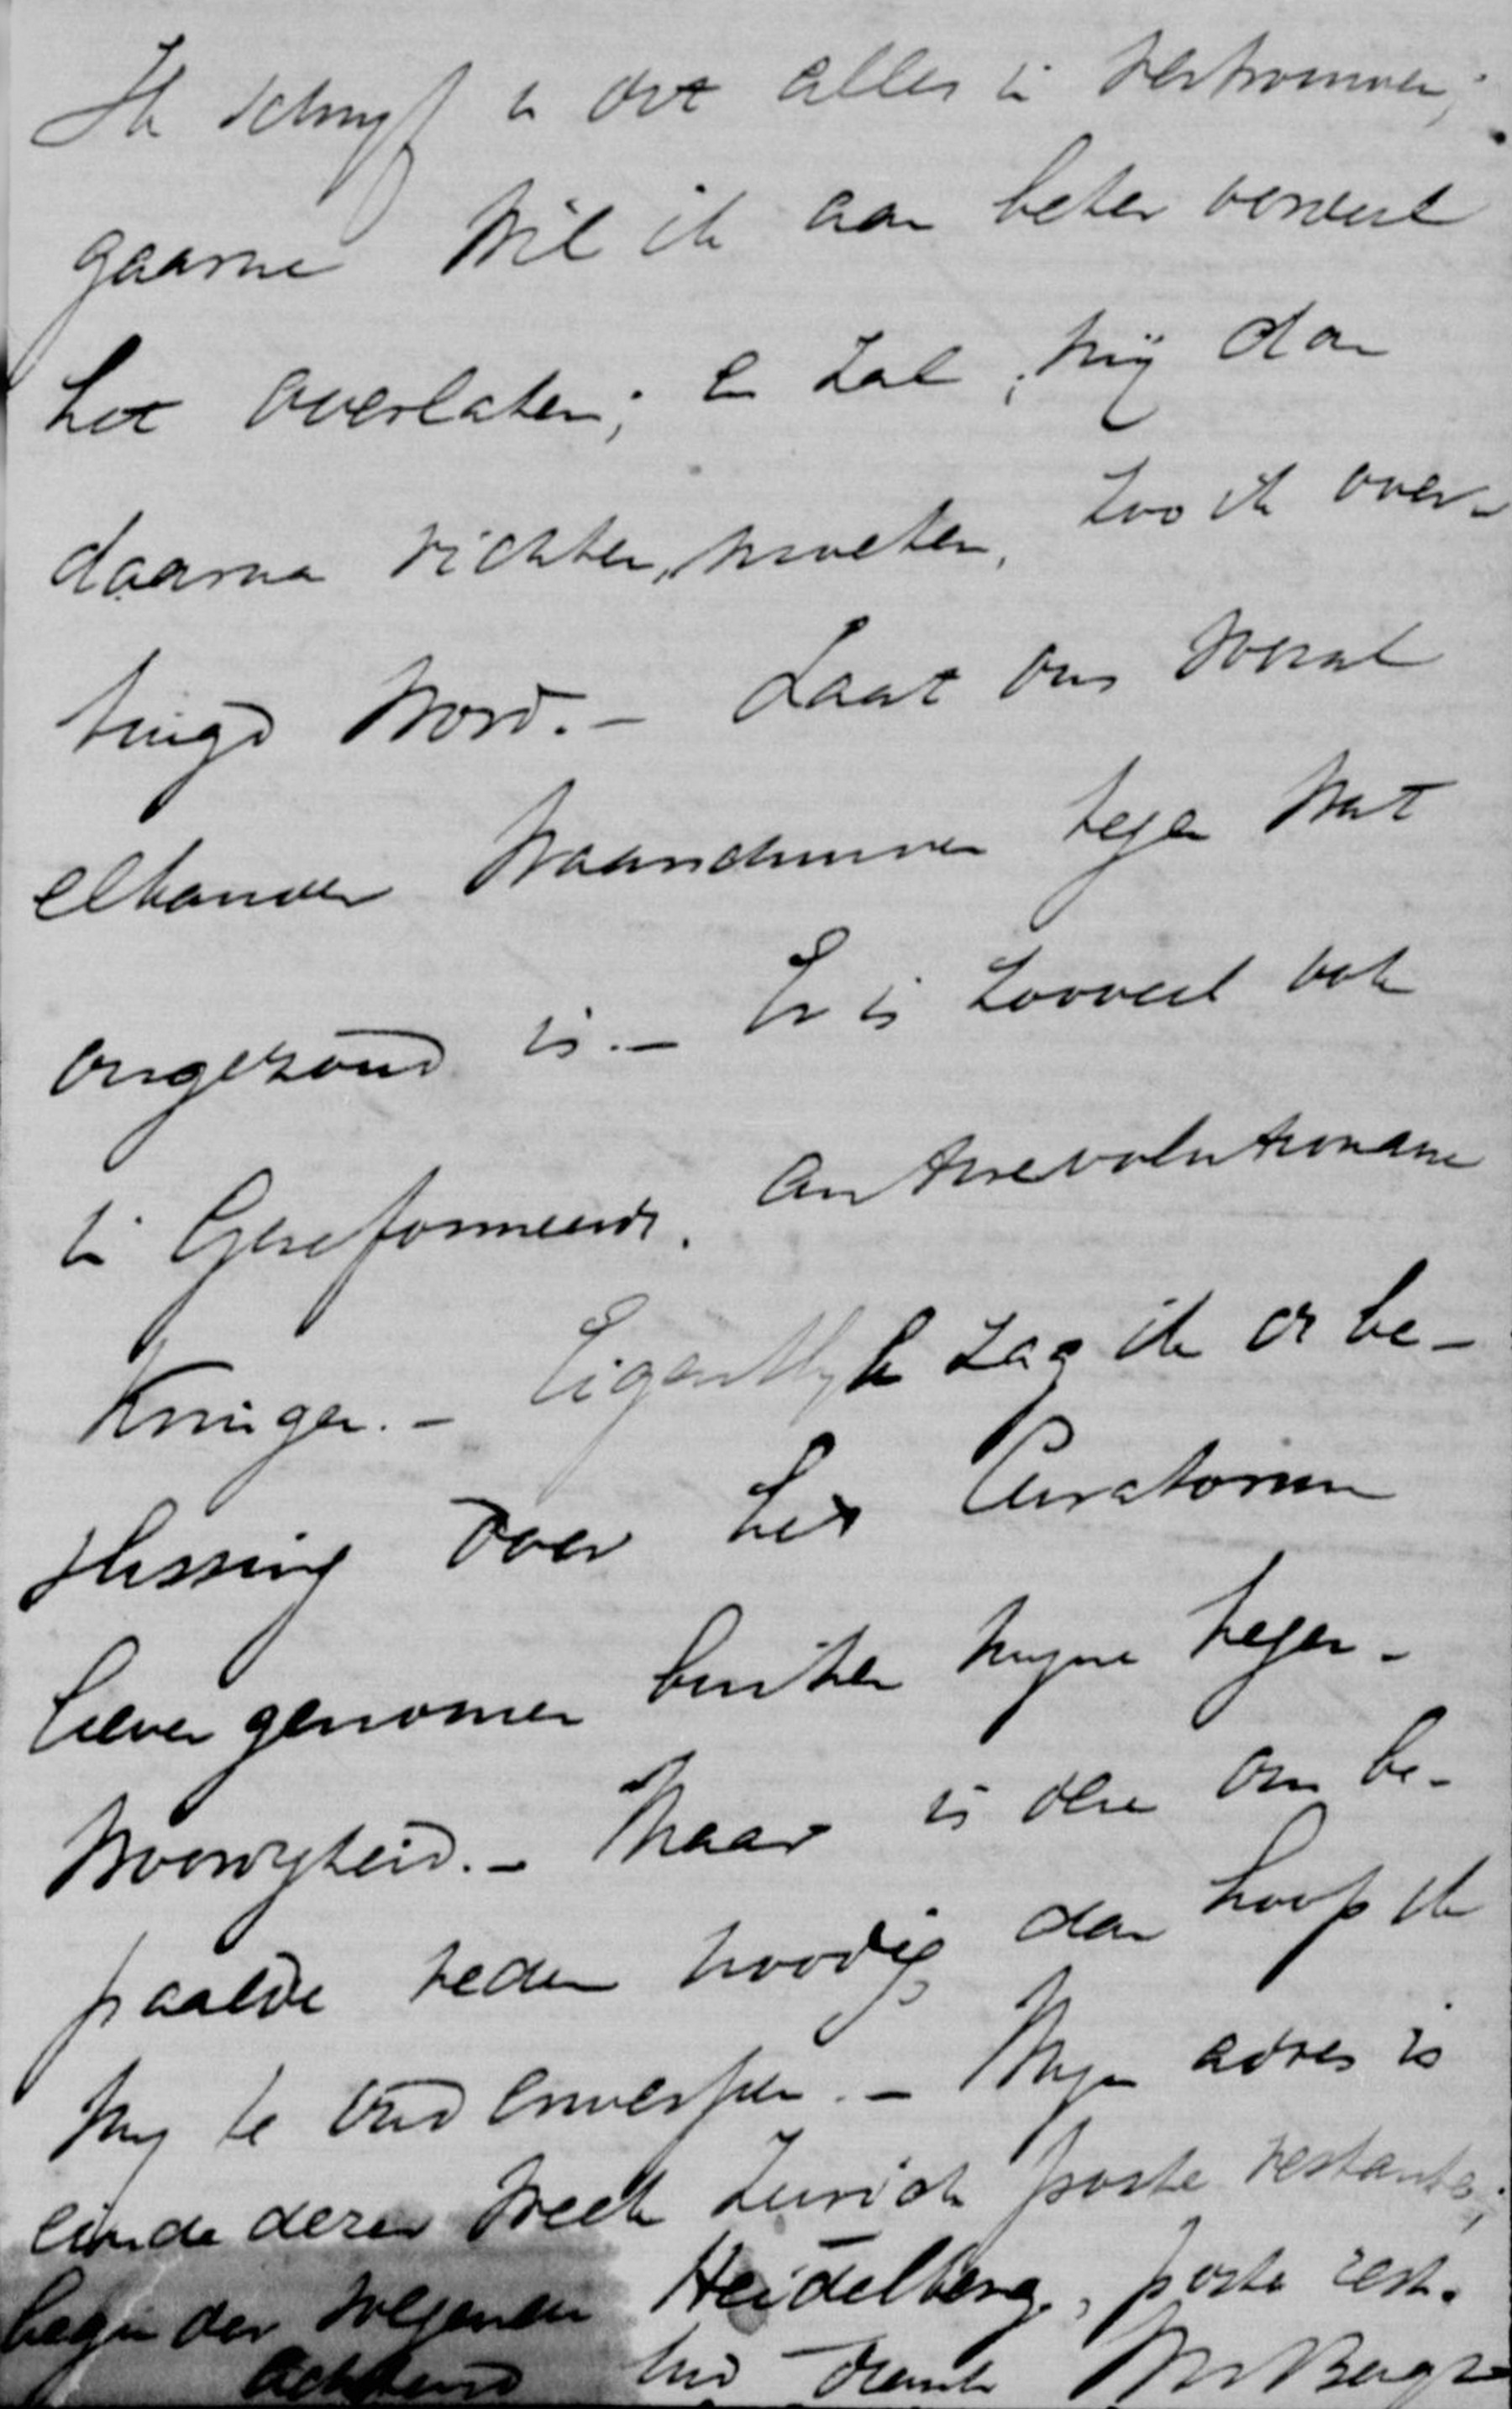 Ik schrijf u dit alles in vertrouwen;
gaarne wil ik aan beter oordeel
het overlaten; en zal mij dan
daarna richten, moeten, zoo ik over-
tuigd word. - Laat ons vooral
elkander waarschuwen tegen wat
ongezond is. - Er is zooveel ook
in Gereformeerde, antirevolutionaire
Kringen. - Eigenlijk zag ik de be-
slissing over het Curatorium
liever genomen buiten mijne tegen-
woordigheid. - Maar is deze om be-
paalde reden noodig dan hoop ik
mij te onderwerpen. - Mijn adres is
einde dezer week Zurich poste restante;
begin der volgende Heidelberg, poste rest.
achtend uw